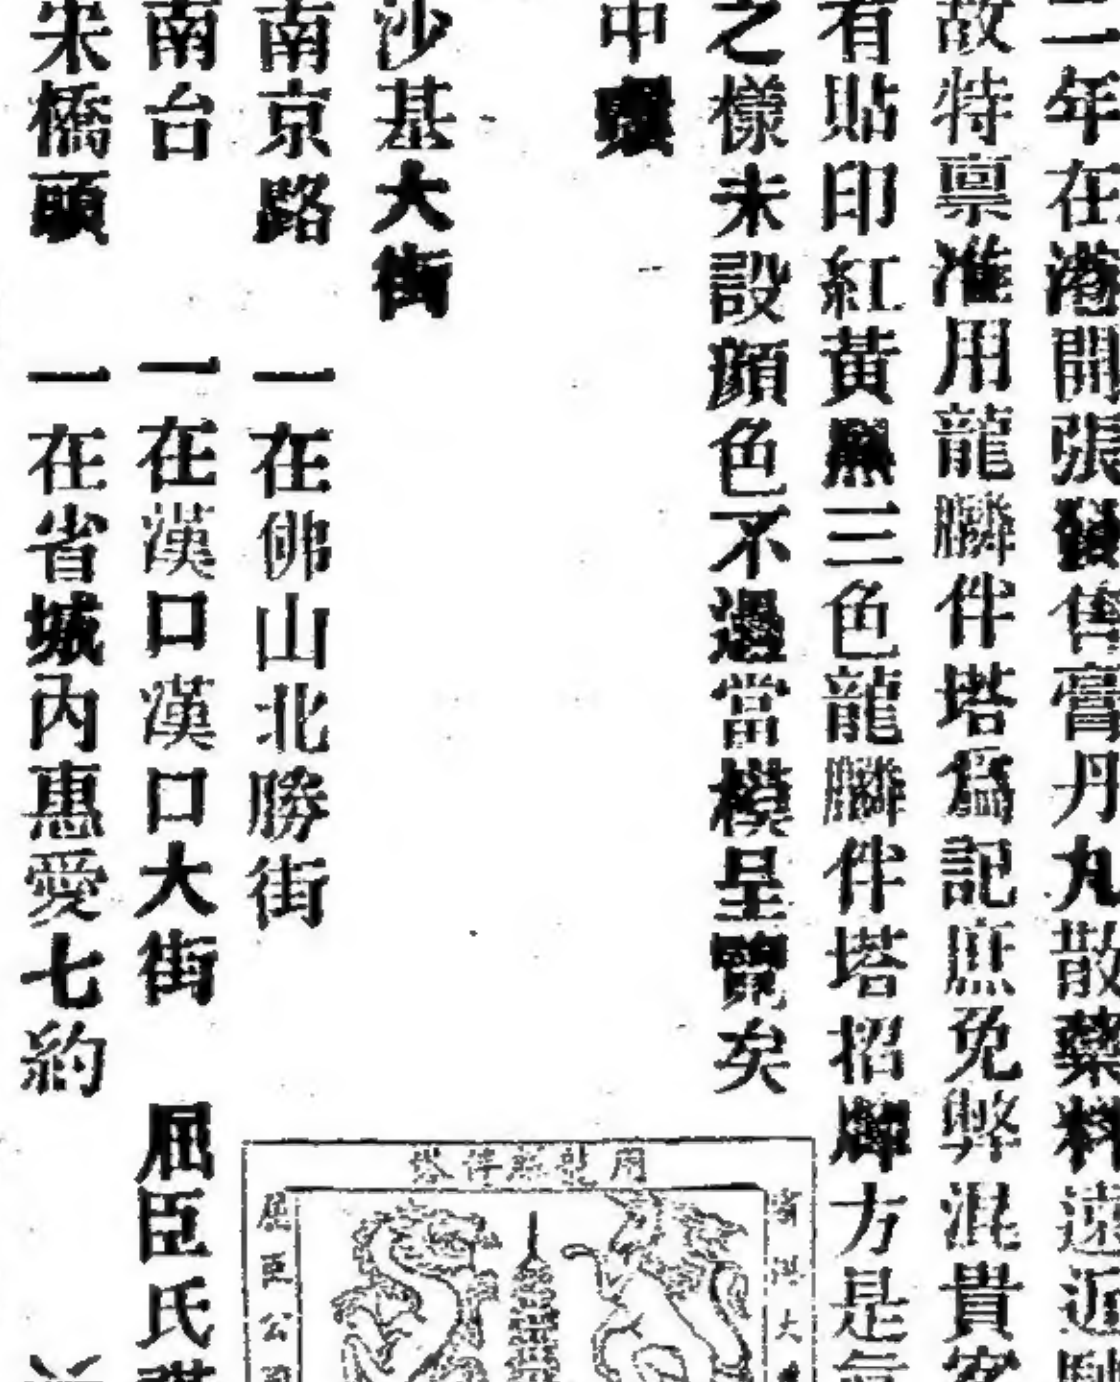 二年在港開張發售膏丹丸散藥料遠近馳
故特禀准用龍麟伴塔爲記庶免弊混貴客
有貼印紅黃黑三色龍麟伴塔招牌方是
之樣未設顔色不過當模呈覽矣
中
沙基大街
南京路 一在佛山北勝街
南台 一在漢口漢口大街 屈臣氏
宋橋頭 一在省城內惠愛七約
用龍麟伴塔
大
屈臣公